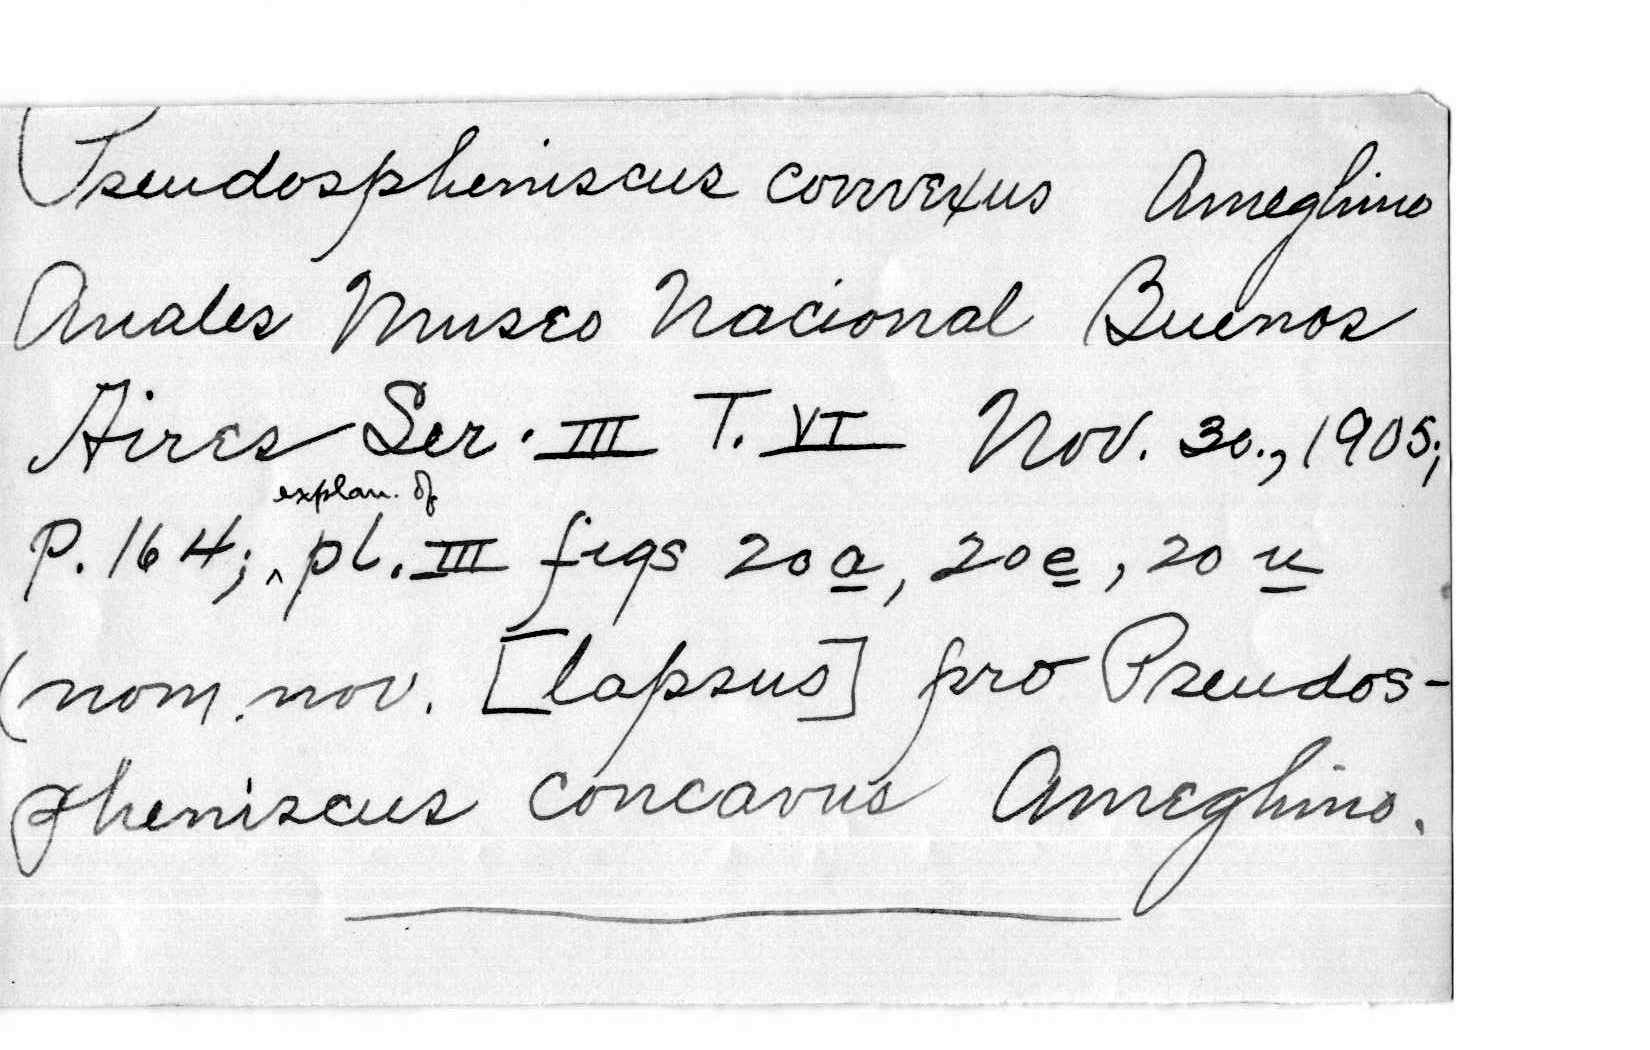 Pseudospheniscus convexus Ameghino
Anales Museo Nacional Buenos
Aires Ser. III T. VI Nov. 30., 1905;
P. 164; ^ explan. of pl. III figs 20a, 20e, 20u
(nom. nov. [lapsus] pro Pseudos-
pheniscus concavus Ameghino.